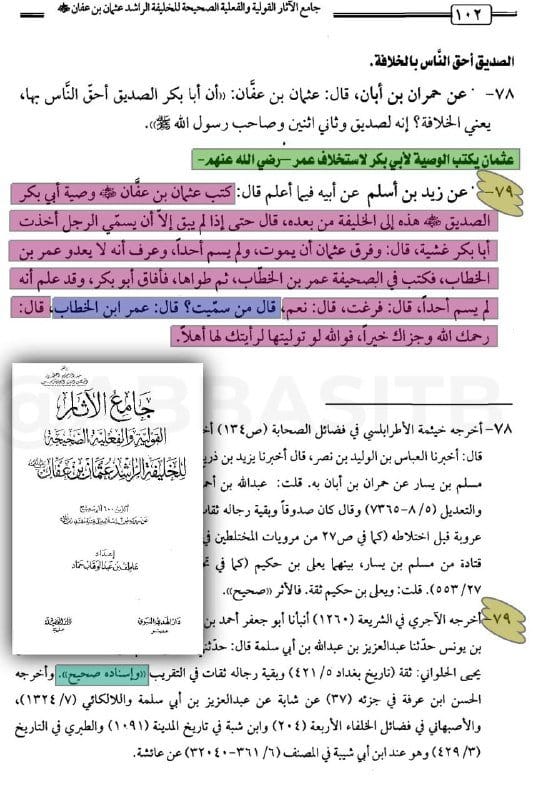 جامع الآثار القولية والفعلية الصحيحة للخليفة الراشد عثمان بن عفان ﷺ
١٠٢
الصديق أحق النَّاس بالخلافة.
٧٨- عن حمران بن أبان، قال: عثمان بن عفَّان: «أن أبا بكر الصديق أحقّ النَّاس بها،
يعني الخلافة؟ إنه لصديق وثاني اثنين وصاحب رسول الله ﷺ».
عثمان يكتب الوصية لأبي بكر لاستخلاف عمر –رضي الله عنهم-
٧٩- عن زيد بن أسلم عن أبيه فيما أعلم قال: كتب عثمان بن عفَّان ﷺ وصية أبي بكر
الصديق ﷺ هذه إلى الخليفة من بعده، قال حتى إذا لم يبق إلاَّ أن يسمّي الرجل أخذت
أبا بكر غشية، قال: وفرق عثمان أن يموت، ولم يسم أحداً، وعرف أنه لا يعدو عمر بن
الخطاب، فكتب في الصحيفة عمر بن الخطَّاب، ثم طواها، فأفاق أبو بكر، وقد علم أنه
لم يسم أحداً، قال: فرغت، قال: نعم، قال من سمّيت؟ قال: عمر ابن الخطاب، قال:
رحمك الله وجزاك خيراً، فوالله لو توليتها لرأيتك لها أهلاً.
جامع الآثار
القولية والفعلية الصحيحة
للخليفة الراشد عثمان بن عفان
إعداد
عاطف بن عبد الوهاب حماد
٧٨- أخرجه خيثمة الأطرابلسي في فضائل الصحابة (ص١٣٤)
قال: أخبرنا العباس بن الوليد بن نصر، قال أخبرنا يزيد بن
مسلم بن يسار عن حمران بن أبان به. قلت: عبدالله بن
والتعديل (٥/ ٨-٧٣٦٥) وقال كان صدوقاً وبقية رجاله
عروبة قبل اختلاطه (كما في ص٢٧ من مرويات المختلطين
قتادة من مسلم بن يسار، بينهما يعلى بن حكيم (كما في
٢٧/ ٥٥٣). قلت: ويعلى بن حكيم ثقة. فالأثر «صحيح».
٧٩- أخرجه الآجري في الشريعة (١٢٦٠) أنبأنا أبو جعفر أحمد بن
بن يونس حدّثنا عبدالعزيز بن عبدالله بن أبي سلمة قال:
يحيى الحلواني: ثقة (تاريخ بغداد ٥/ ٤٢١) وبقية رجاله ثقات في التقريب «وإسناده صحيح». وأخرجه
الحسن ابن عرفة في جزئه (٣٧) عن شابة عن عبدالعزيز بن أبي سلمة واللالكائي (٧/ ١٣٢٤)،
والأصبهاني في فضائل الخلفاء الأربعة (٢٠٤) وابن شبة في تاريخ المدينة (١٠٩١) والطبري في التاريخ
(٣/ ٤٢٩) وهو عند ابن أبي شيبة في المصنف (٦/ ٣٦١-٣٢٠٤٠) عن عائشة.